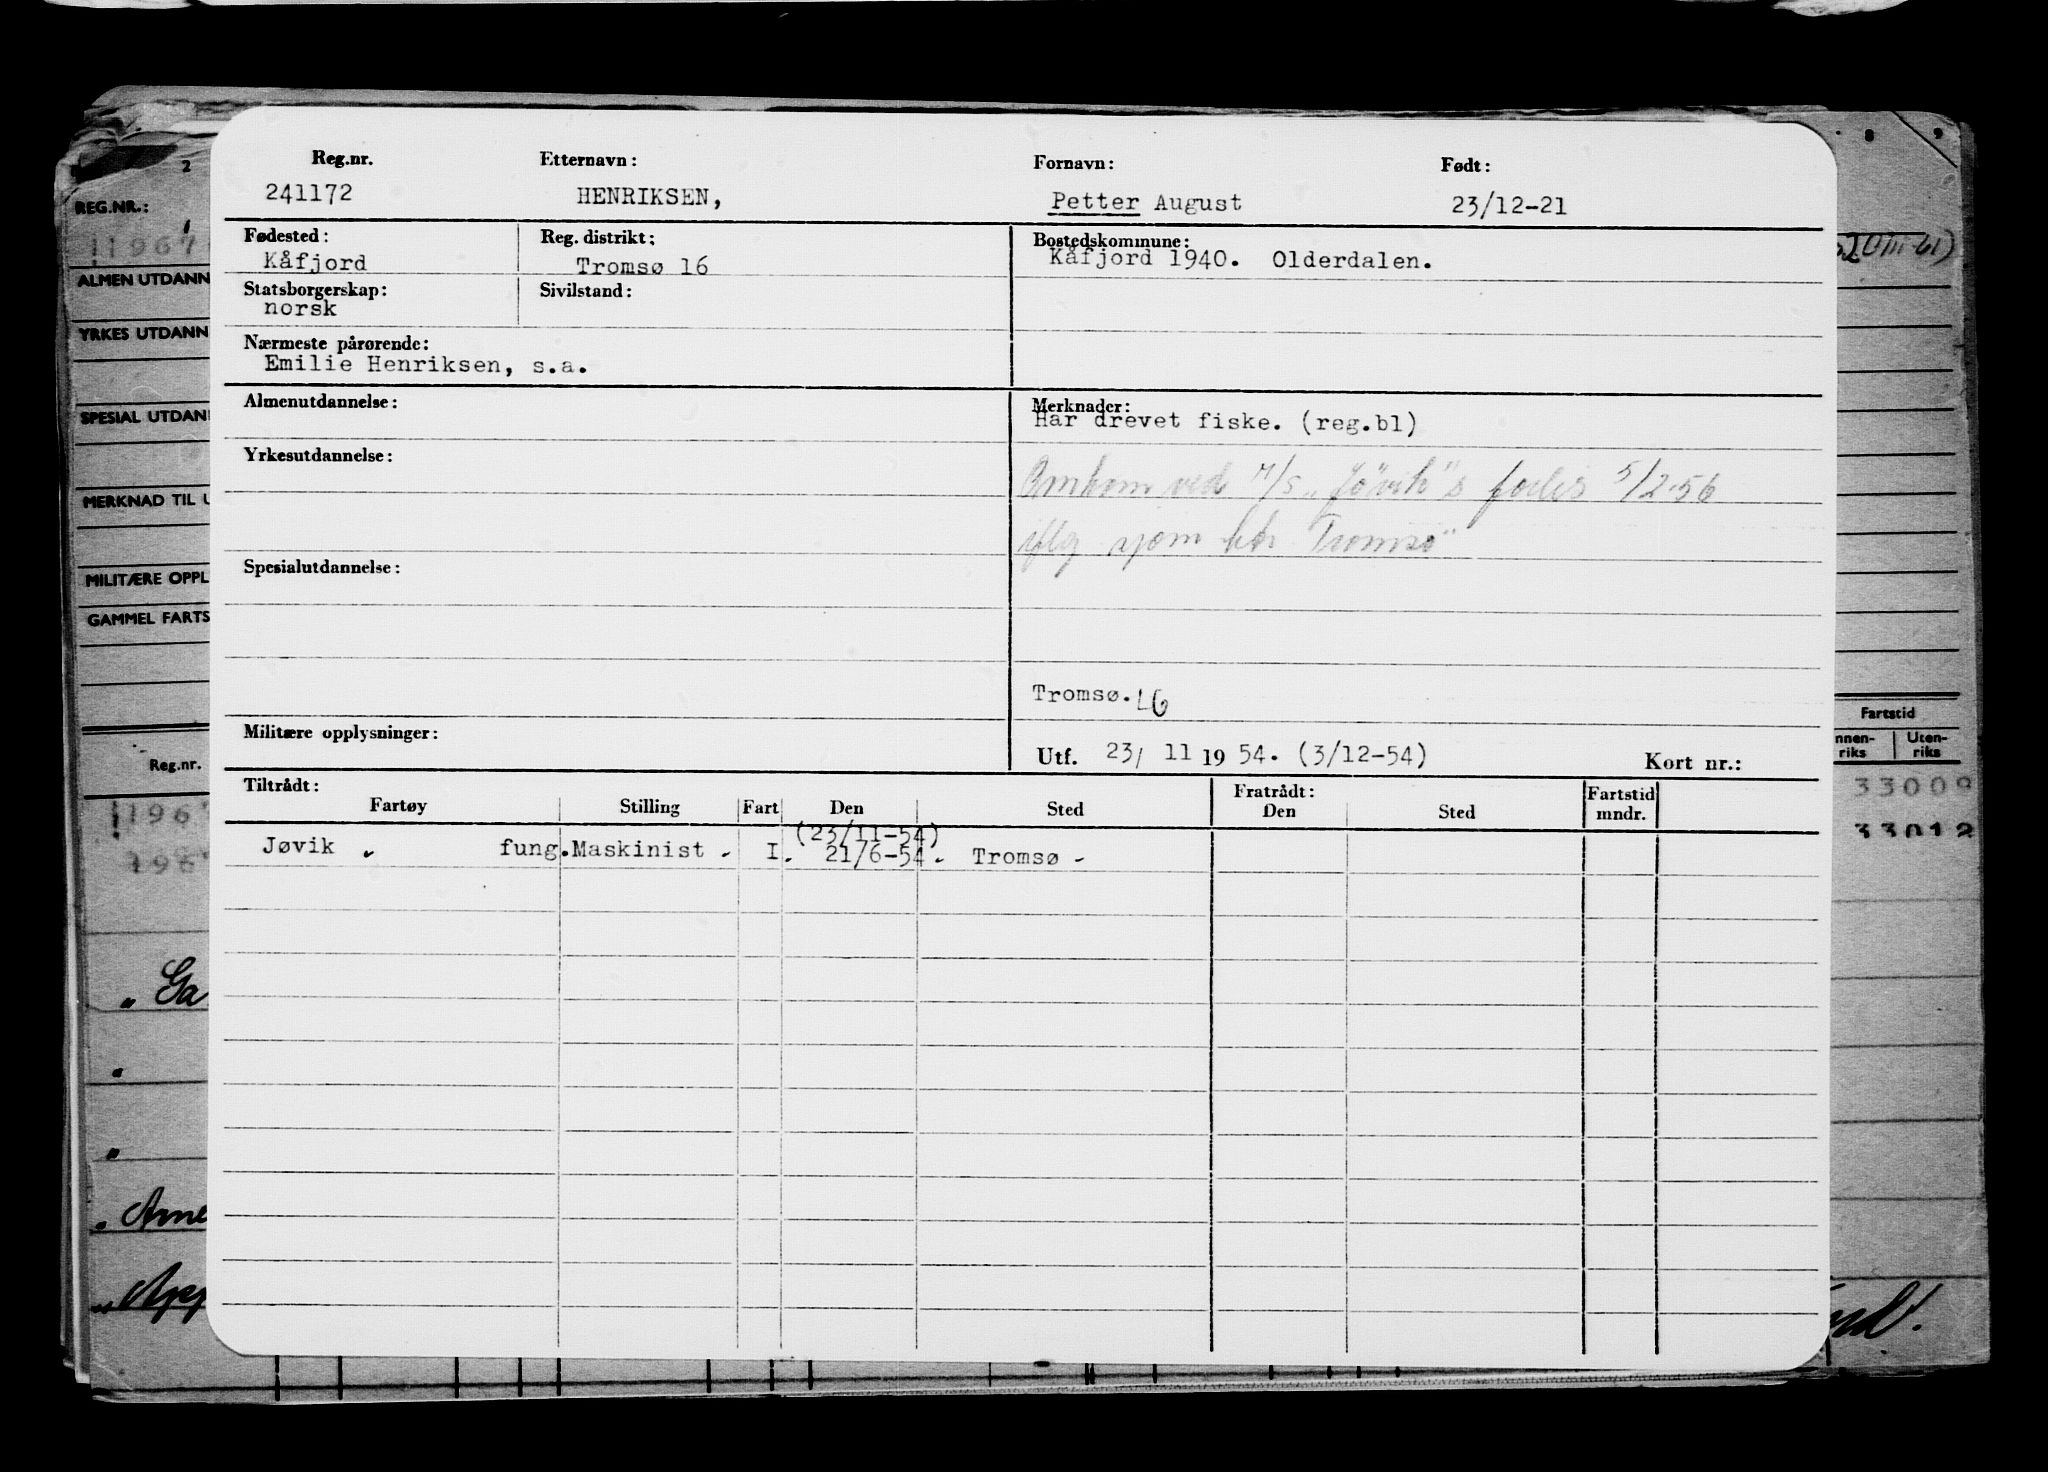 2
8
9
REG.NR.:
ALMEN UTDANN
YRKES UTDANN
SPESIAL UTDAN
MERKNAD TIL U
MILITÆRE OPPL
GAMMEL FARTS
Reg.nr.
Reg.nr. Etternavn: Fornavn: Født:
241172 HENRIKSEN, Petter August 23/12-21
Fødested: Reg. distrikt: Bostedskommune:
Kåfjord Tromsø 16 Kåfjord 1940. Olderdalen.
Statsborgerskap: Sivilstand:
norsk
Nærmeste pårørende:
Emilie Henriksen, s.a.
Almenutdannelse: Merknader:
Har drevet fiske. (reg.bl)
Yrkesutdannelse:
Omkom ved M/S „Jøvik"s forlis 5/2-56
iflg Tromsø"
Spesialutdannelse:
Tromsø. 16
Militære opplysninger:
Utf. 23/ 11 19 54. (3/12-54) Kort nr.:
Tiltrådt: Fratrådt:
Fartøy Stilling Fart Den Sted Den Sted Fartstid mndr.
(23/11-54)
Jøvik fung. Maskinist I. 21/6-54 Tromsø
Fartstid
nnen-riks Uten-riks
33009
33012
„ Ga